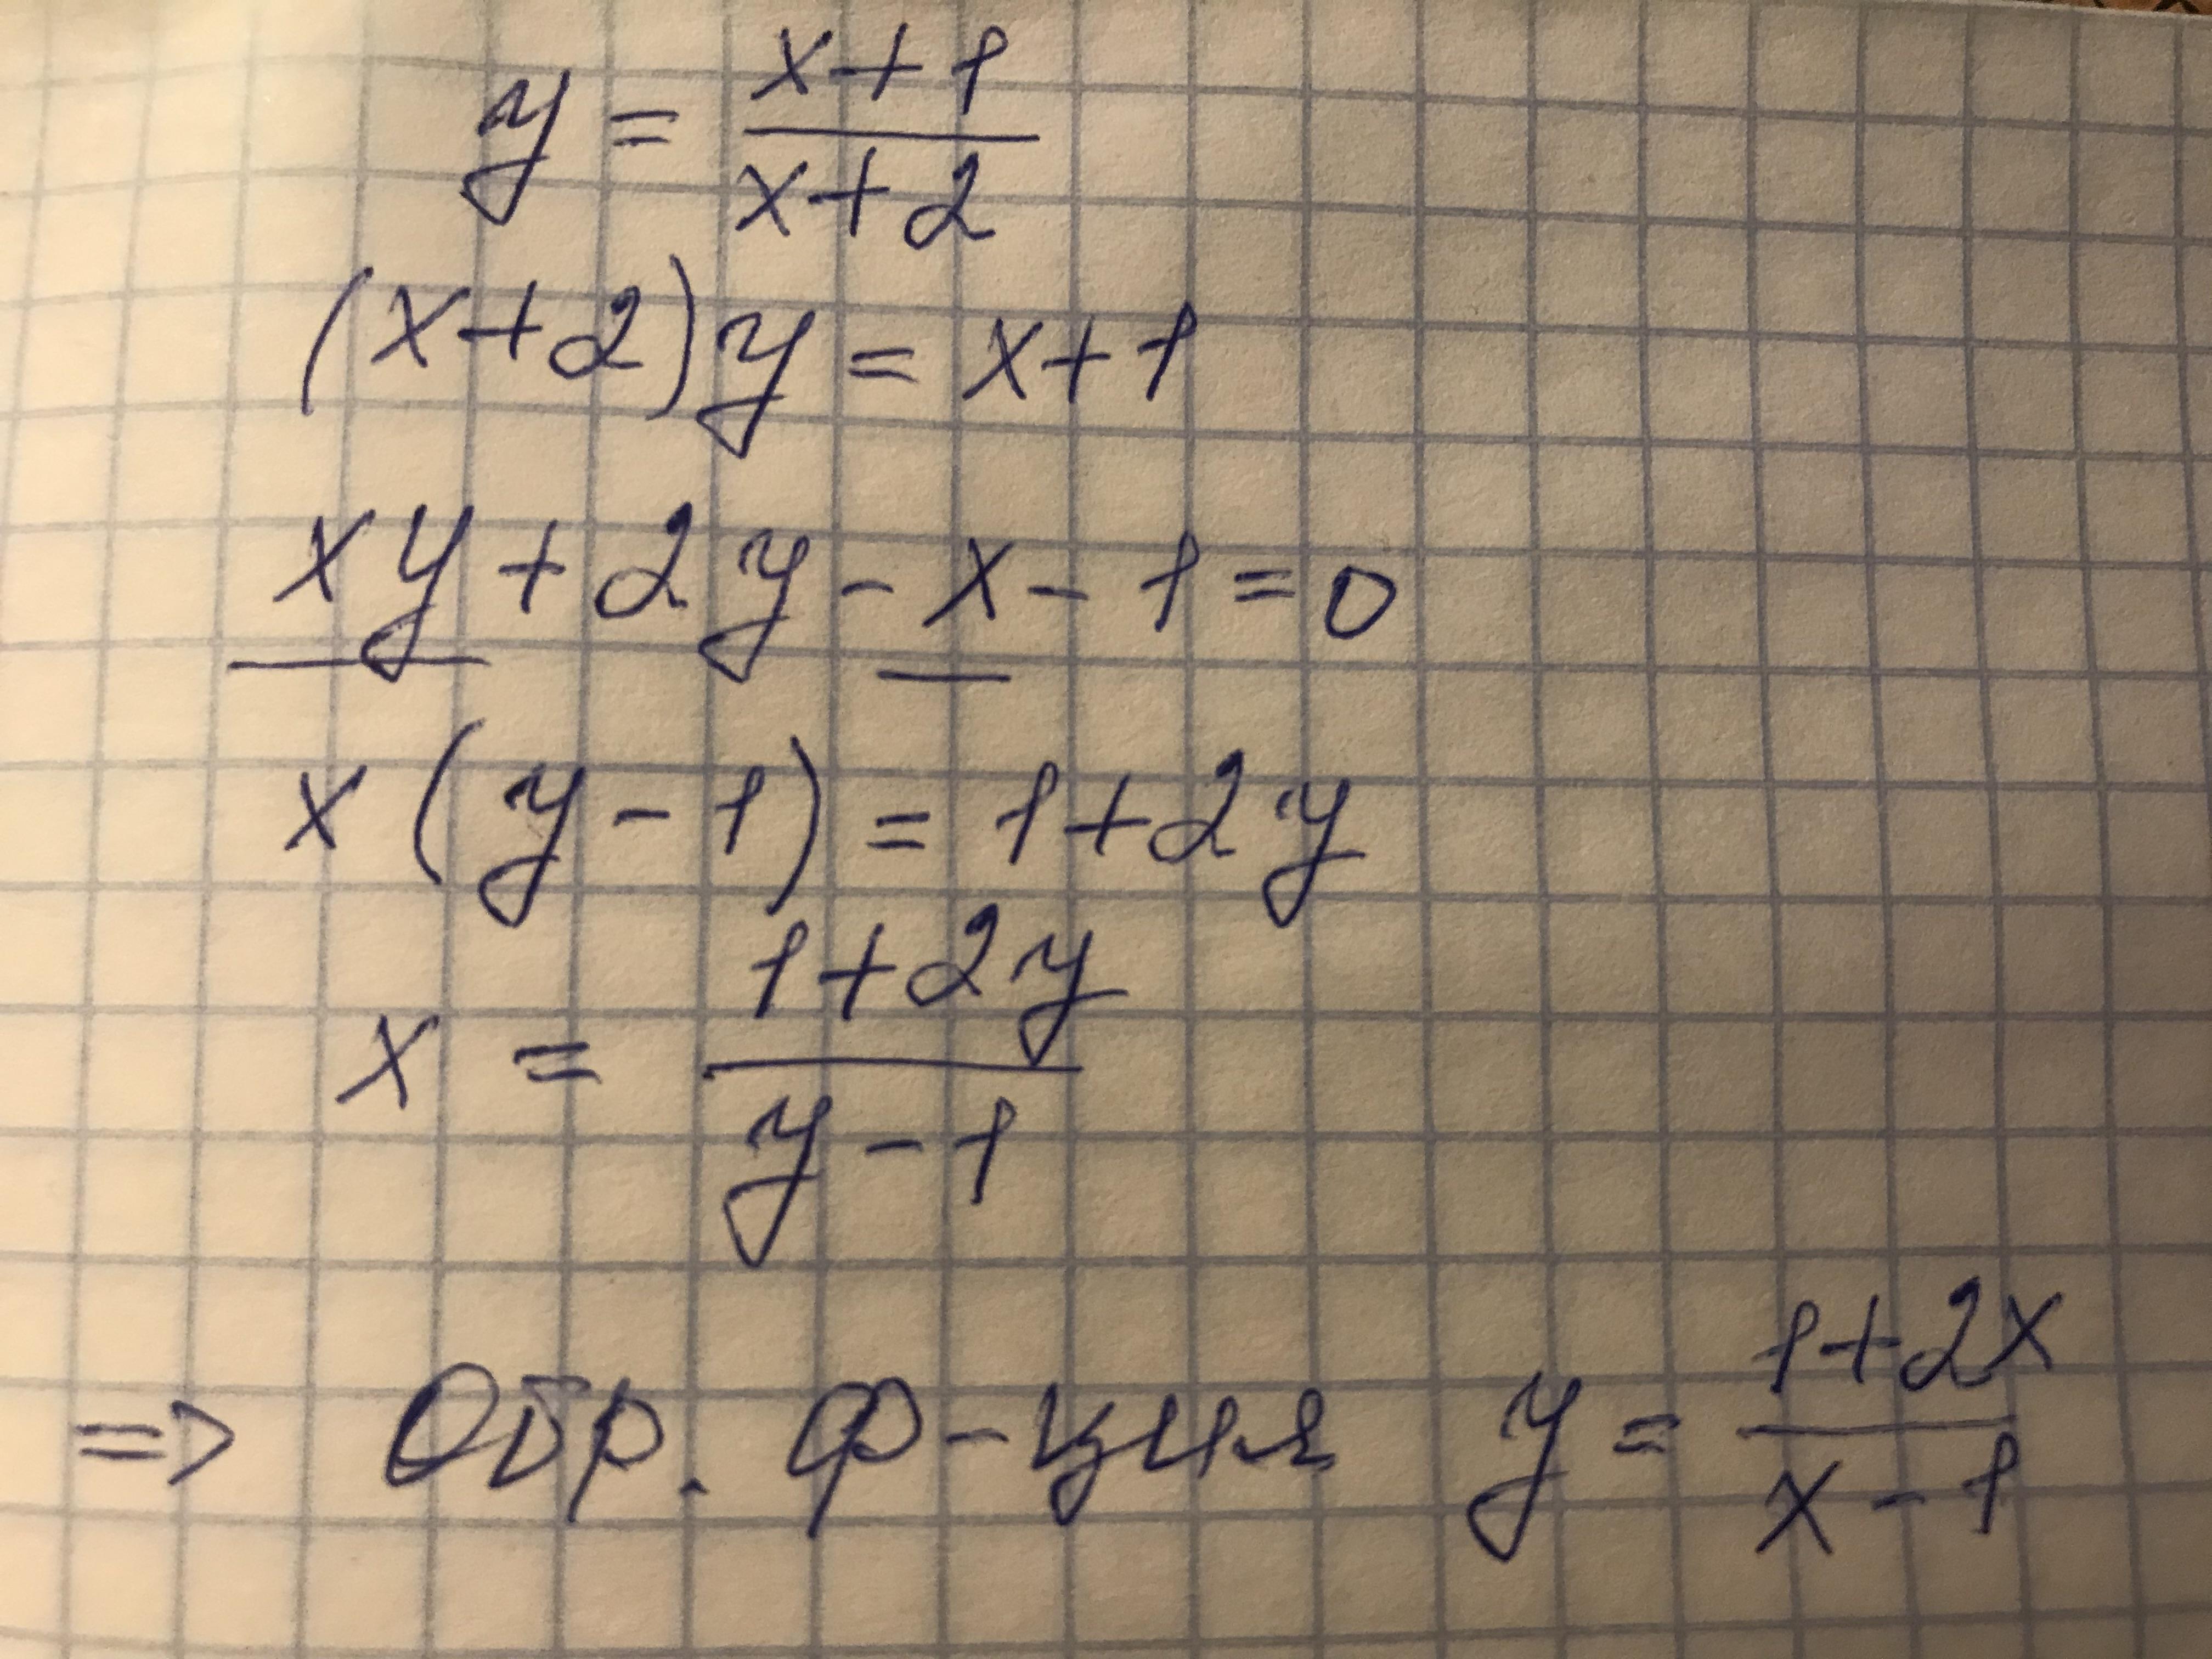 y = \frac{x+1}{x+2}
(x+2)y = x+1
xy + 2y - x - 1 = 0
x(y - 1) = 1+2y
x = \frac{1+2y}{y-1}
=> Обр. ф-ция y = \frac{1+2x}{x-1}